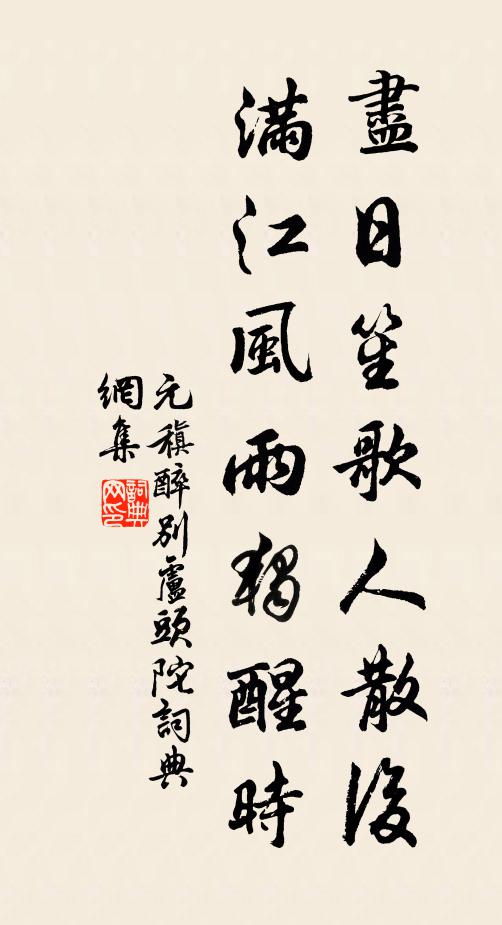 盡日笙歌人散後
滿江風雨獨醒時
元稹醉別盧頭陀詞典
網集
詞典
网印